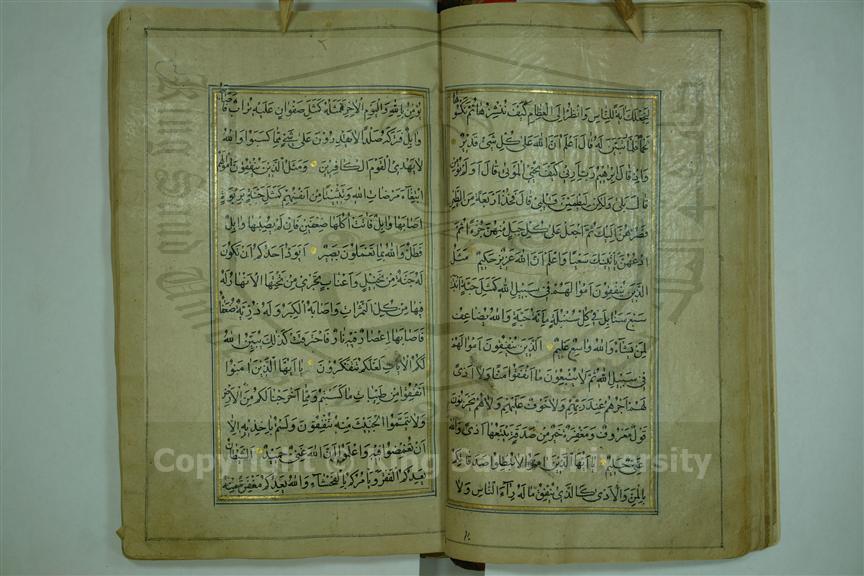 لنجعلك آية للناس وانظر الى العظام كيف ننشزها ثم نكسوها
لحما فلما تبين له قال اعلم ان الله على كل شئ قدير
واذ قال ابرهيم رب ارني كيف تحي الموتى قال اولم تؤمن
قال بلى ولكن ليطمئن قلبي قال فخذ اربعة من الطير
فصرهن اليك ثم اجعل على كل جبل منهن جزءا ثم
ادعهن ياتينك سعيا واعلم ان الله عزيز حكيم مثل
الذين ينفقون اموالهم في سبيل الله كمثل حبة انبتت
سبع سنابل في كل سنبلة مائة حبة والله يضاعف
لمن يشاء والله واسع عليم الذين ينفقون اموالهم
في سبيل الله ثم لا يتبعون ما انفقوا منا ولا اذى
لهم اجرهم عند ربهم ولا خوف عليهم ولا هم يحزنون
قول معروف ومغفرة خير من صدقة يتبعها اذى والله
غني حليم يا ايها الذين امنوا لا تبطلوا صدقاتكم
بالمن والاذى كالذي ينفق ماله رئاء الناس ولا
يؤمن بالله واليوم الاخر فمثله كمثل صفوان عليه تراب فاصابه
وابل فتركه صلدا لا يقدرون على شئ مما كسبوا والله
لا يهدى القوم الكافرين ومثل الذين ينفقون اموالهم
ابتغاء مرضات الله وتثبيتا من انفسهم كمثل جنة بربوة
اصابها وابل فاتت اكلها ضعفين فان لم يصبها وابل
فطل والله بما تعملون بصير ايود احدكم ان تكون
له جنة من نخيل واعناب تجري من تحتها الانهار له
فيها من كل الثمرات واصابه الكبر وله ذرية ضعفاء
فاصابها اعصار فيه نار فاحترقت كذلك يبين الله
لكم الايات لعلكم تتفكرون يا ايها الذين امنوا
انفقوا من طيبات ما كسبتم ومما اخرجنا لكم من الارض
ولا تيمموا الخبيث منه تنفقون ولستم باخذيه الا
ان تغمضوا فيه واعلموا ان الله غني حميد الشيطان
يعدكم الفقر ويامركم بالفحشاء والله يعدكم مغفرة منه
Copyright © King Saud University
King Saud University